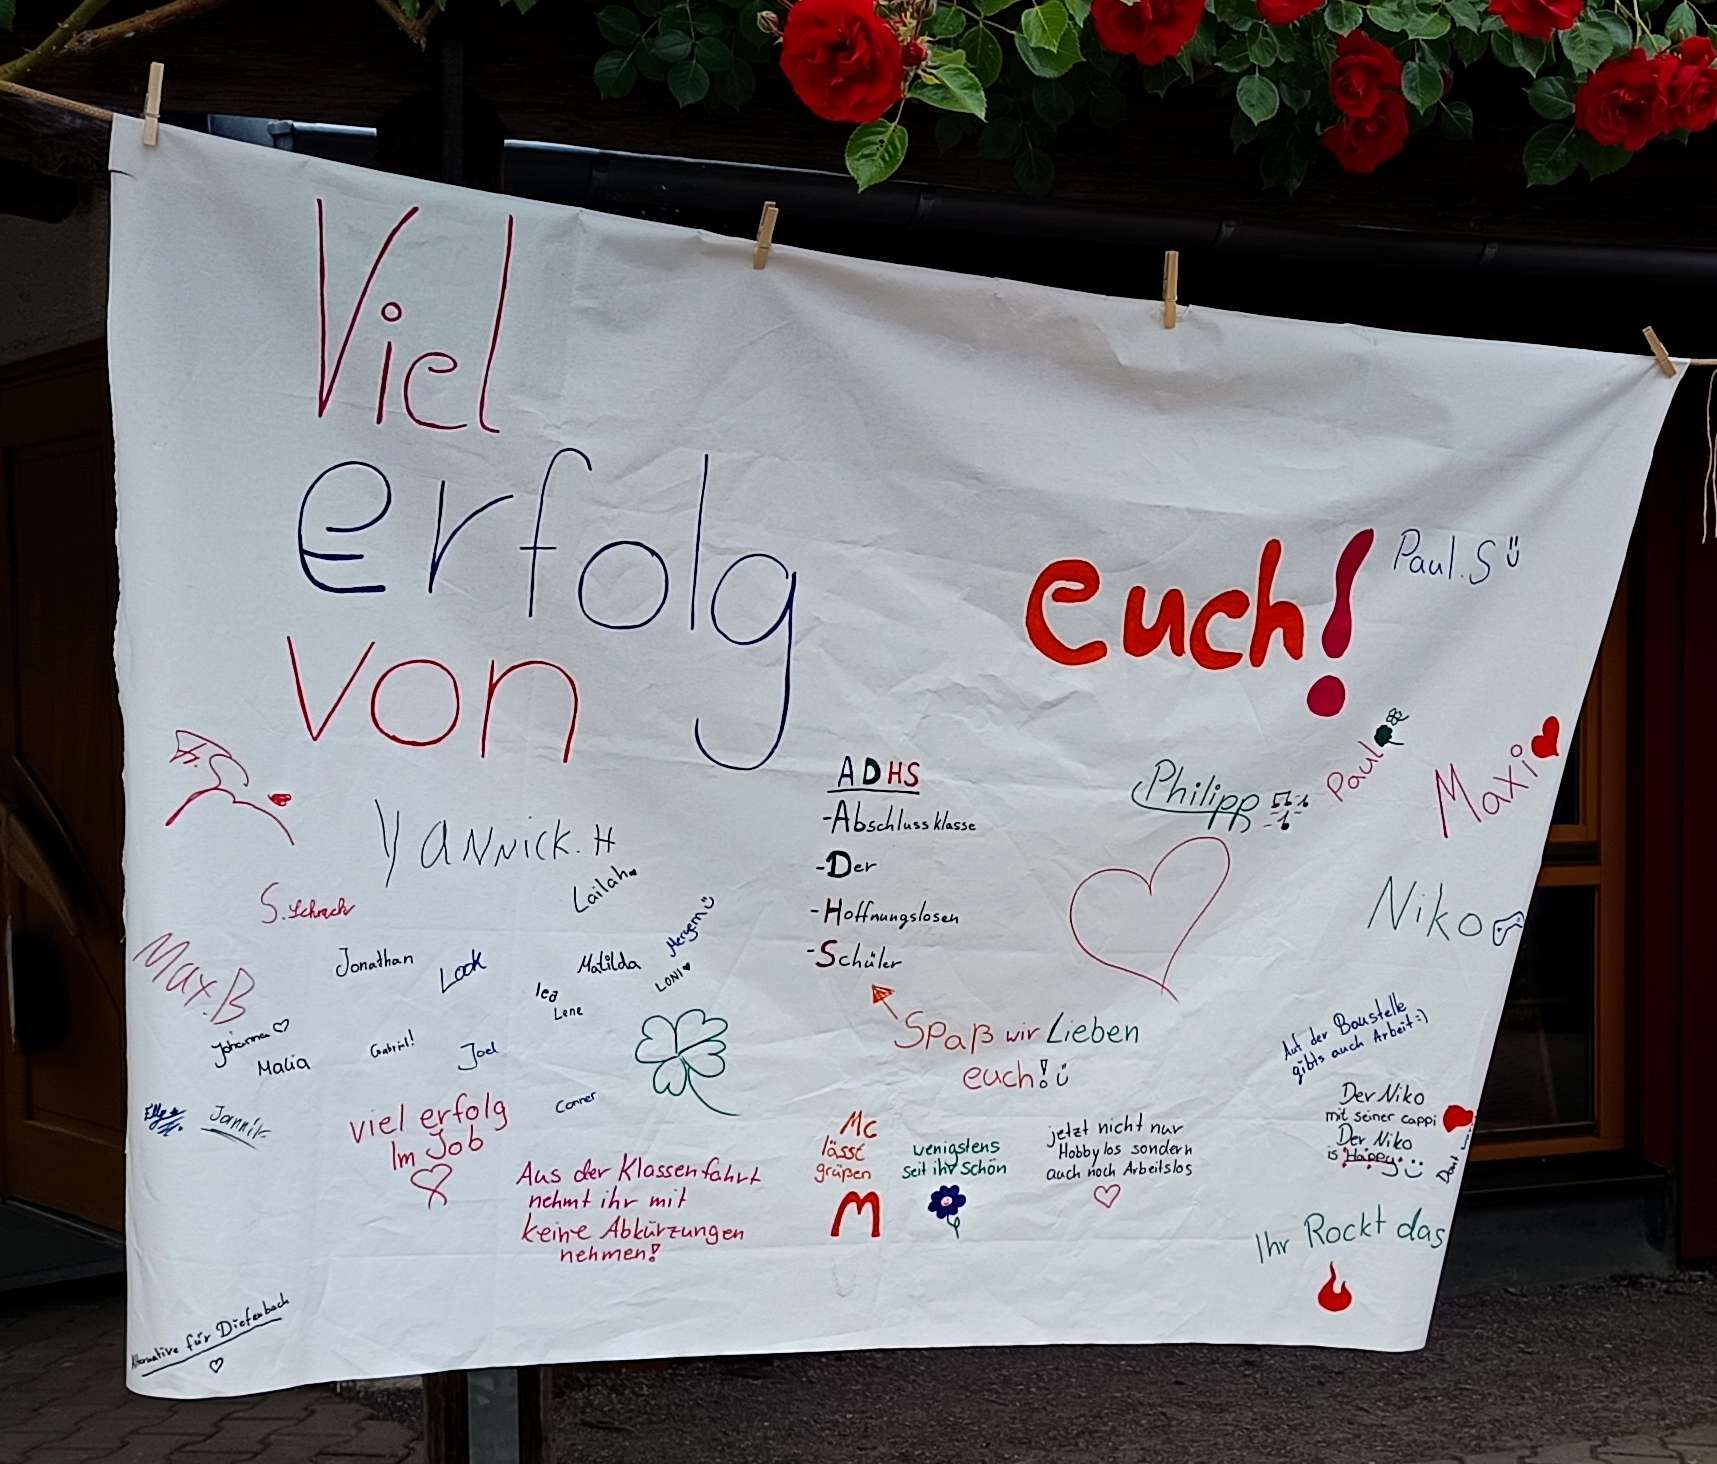 Viel
erfolg
von
euch!
Paul.S
Maxi
Paul
Philipp
Niko
Yannick. H
Lailah
Meryem
LONI
Matilda
lea
Lene
Jonathan
Look
Max.B
Johanna
Malia
Gabriel!
Joel
Jannik
Conner
ADHS
-Abschlussklasse
-Der
-Hoffnungslosen
-Schüler
Spaß wir Lieben
euch!
viel erfolg
Im Job
Aus der Klassenfahrt
nehmt ihr mit
keine Abkürzungen
nehmen!
Mc
lässt
grüßen
M
wenigstens
seit ihr schön
jetzt nicht nur
Hobbylos sondern
auch noch Arbeitslos
Auf der Baustelle
gibts auch Arbeit:)
Der Niko
mit seiner cappi
Der Niko
is Happy
Ihr Rockt das
Alternative für Diefenbach